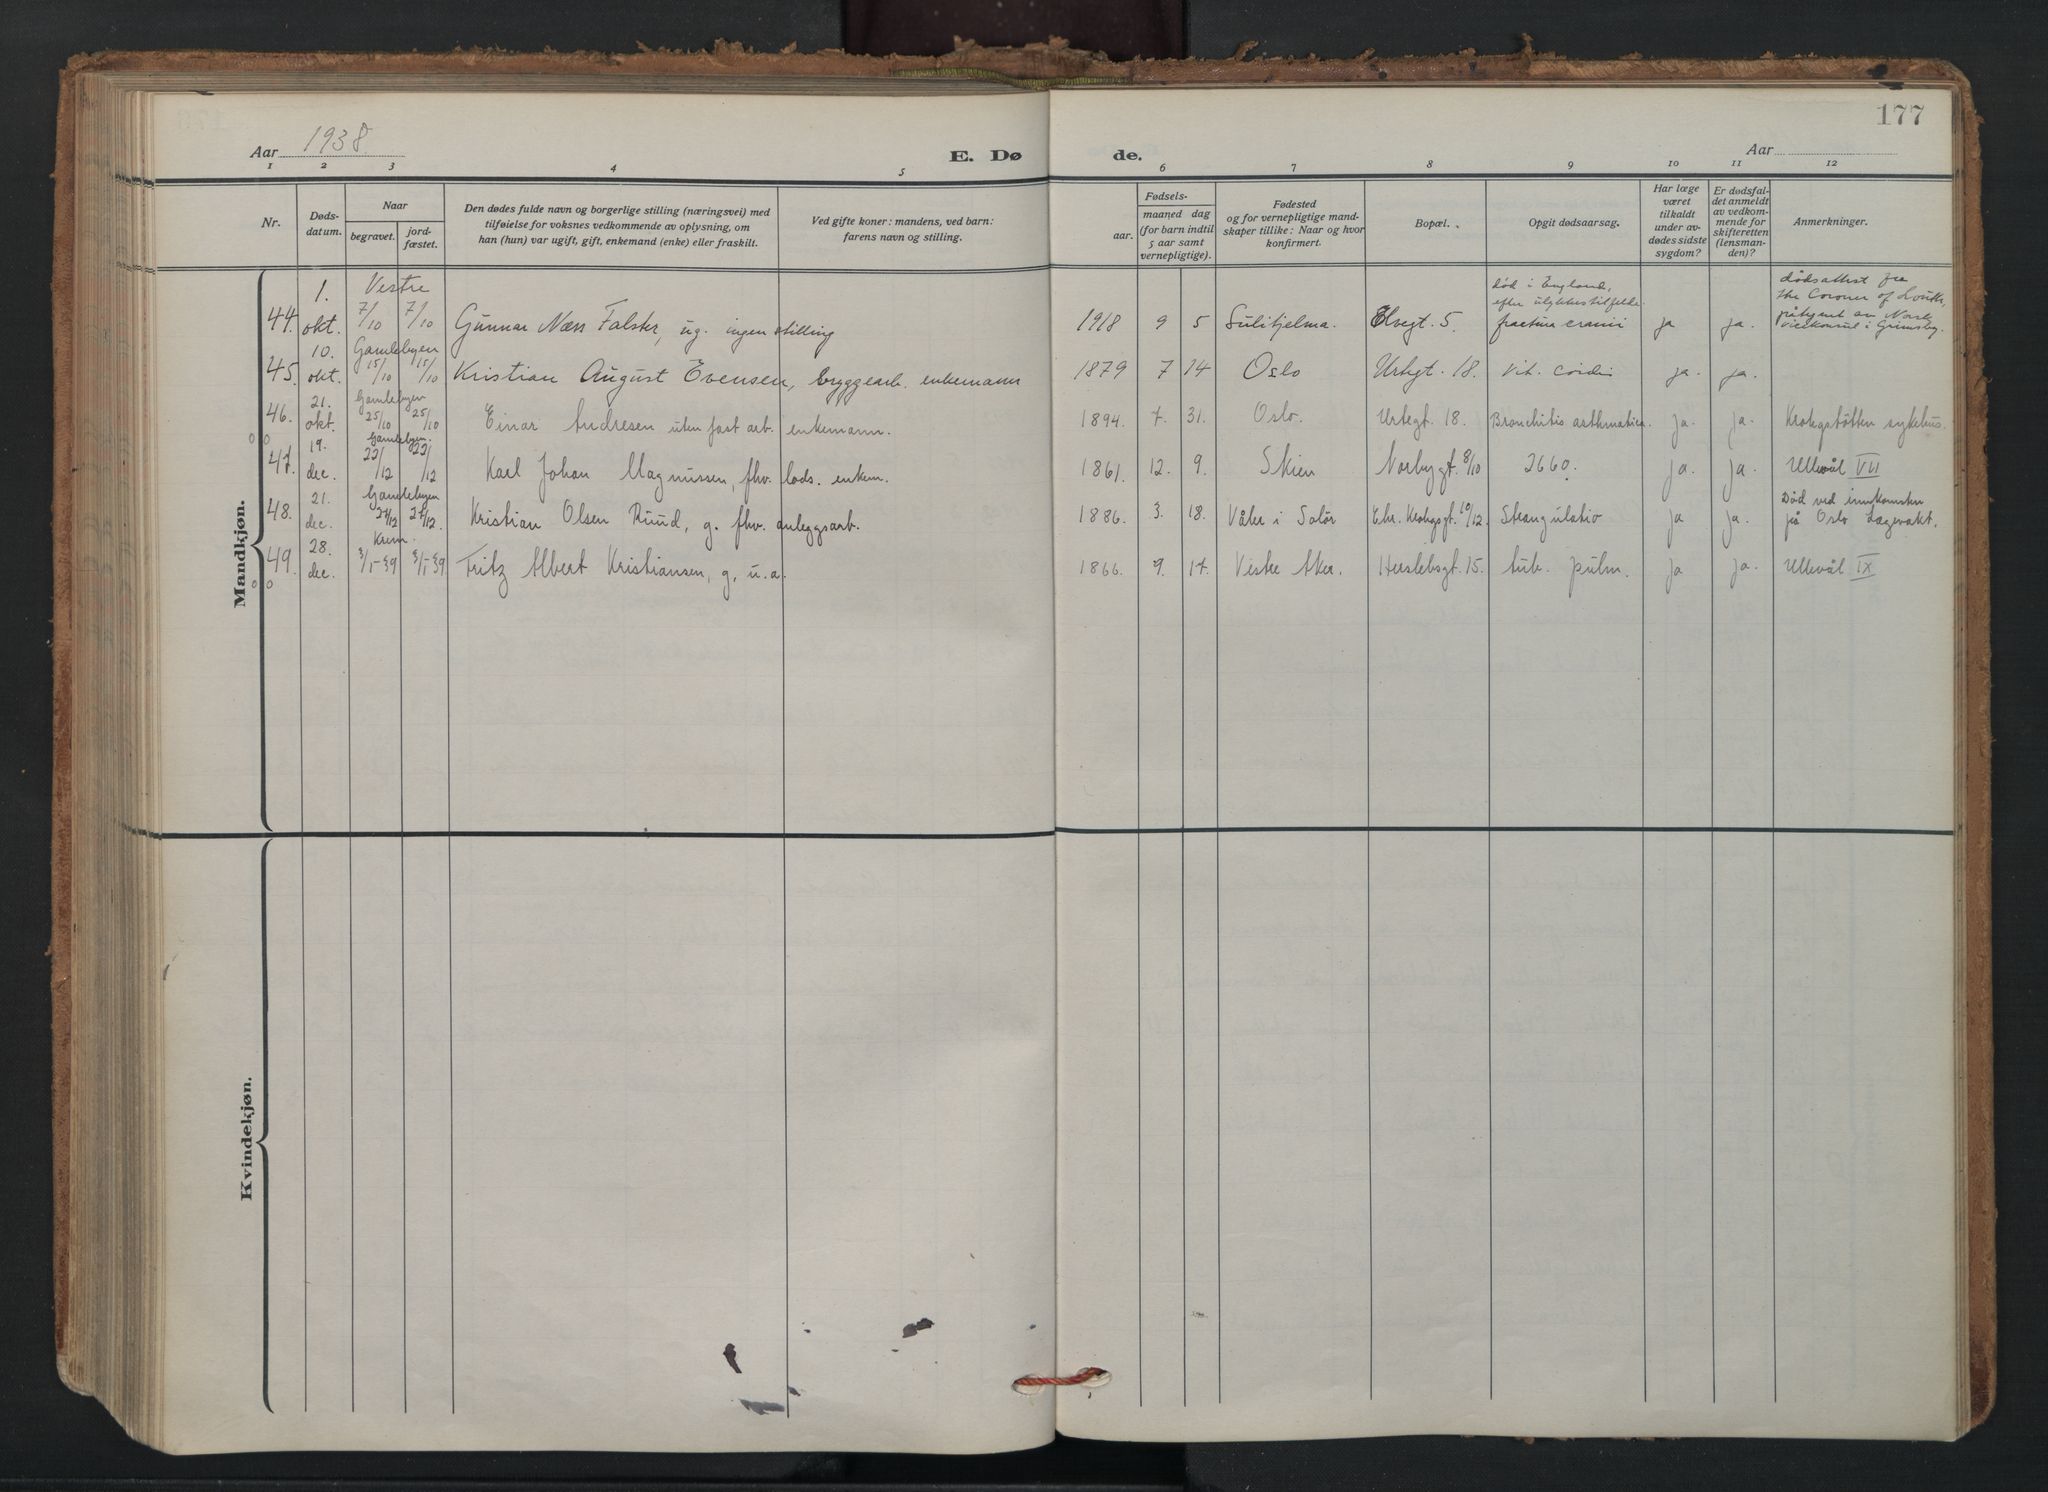 177
Aar 1938.
E. Dø
de.
Aar
1 2 3 4 5 6 7 8 9 10 11 12
Nr.
Døds-
datum.
Naar
begravet.
jord-
fæstet.
Den dødes fulde navn og borgerlige stilling (næringsvei) med
tilføielse for voksnes vedkommende av oplysning, om
han (hun) var ugift, gift, enkemand (enke) eller fraskilt.
Ved gifte koner: mandens, ved barn:
farens navn og stilling.
Fødsels-
aar.
maaned dag
(for barn indtil
5 aar samt
vernepligtige).
Fødested
og for vernepligtige mand-
skaper tillike: Naar og hvor
konfirmert.
Bopæl.
Opgit dødsaarsag.
Har læge
været
tilkaldt
under av-
dødes sidste
sygdom?
Er dødsfal-
det anmeldt
av vedkom-
mende for
skifteretten
(lensman-
den)?
Anmerkninger.
Mandkjøn.
1. Vestre død i England, dødsattest fra
efter ulykkestilfelde the Coroner of Louth
44. okt. 7/10 7/10 Gunnar Næss Falster, ug. ingen stilling 1918 9 5 Sulitjelma. Elvegt. 5. fractura cranii ja ja. påtegnet av Norsk
vicekonsul i Grimsby.
10. Gamlebyen
45. okt. 15/10 15/10 Kristian August Evensen, bryggearb. enkemann 1879 7 14 Oslo Urtegt. 18. Vit. cordis ja. ja.
21. Gamlebyen
46. okt 25/10 25/10 Einar Andresen uten fast arb. enkemann. 1894. 7. 31. Oslo. Urtegt. 18. Bronchitis asthmatica. ja. ja. Krohgstøtten sykehus.
19. Gamlebyen.
47. dec 22/12 22/12 Karl Johan Magnussen, fhv. lods. enkem. 1861. 12. 9. Skien Norbygt. 8/10 2660. ja. ja. Ullevål VII
21. Gamlebyen Død ved innkomsten
48. dec. 27/12 27/12. Kristian Olsen Ruud, g. fhv. anleggsarb. 1886. 3. 18. Våler i Solør Chr. Krohgsgt. 10/12. Strangulatio ja ja. på Oslo Lægevakt.
28. Krem.
49. dec. 3/1-39 3/1-39. Fritz Albert Kristiansen, g. u. a. 1866. 9. 17. Vestre Aker. Herslebsgt. 15. tub. pulm. ja ja. Ullevål IX
Kvindekjøn.